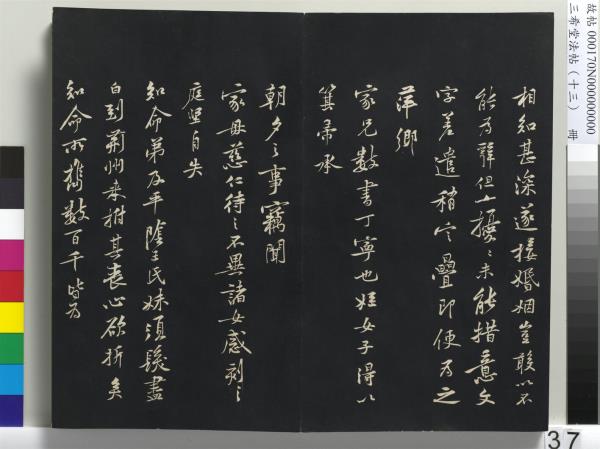 相知甚深遂接婚姻豈敢以不
能為辭但士擾擾未能措意文
字差遣稍定疊即使為之
萍鄉
家兄數書丁寧也姪女子得以
箕帚承
朝夕之事竊聞
家母慈仁待之不異諸女感刻之
庭堅自失
知命弟及平陰王氏妹須髮盡
白到荊州來拊其喪心欲折矣
知命所攜數百千皆為
故帖 000170N000000000
三希堂法帖（十三） 冊
37